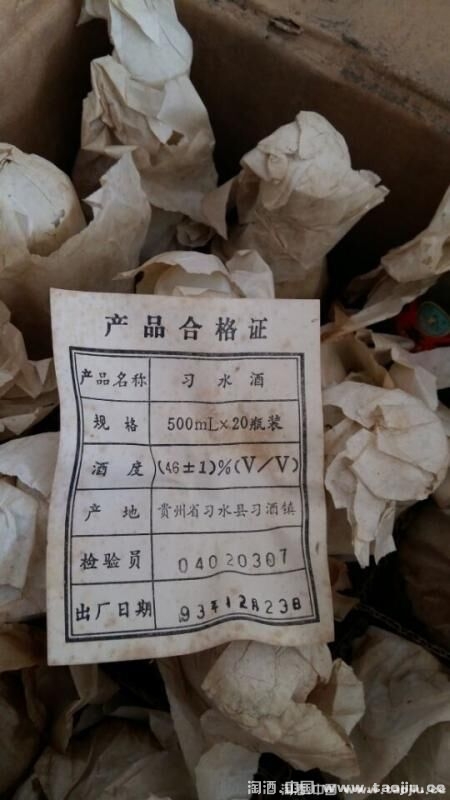 产品合格证
产品名称 习水酒
规格 500mL×20瓶装
酒度 (46±1)%(V/V)
产地 贵州省习水县习酒镇
检验员 04020307
出厂日期 93年12月23日
淘酒中国 www.taojiu.cc